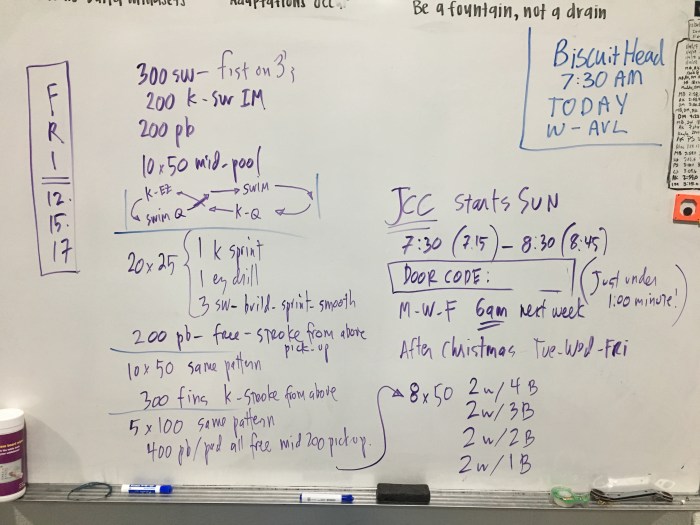 Be a fountain, not a drain
Biscuit Head
7:30 AM
TODAY
W-AVL
FRI
12.
15.
17
300 sw - fist on 3's
200 k-sw IM
200 pb
10x50 mid-pool
K-EZ
SWIM
swim Q
K-Q
20x25
1 k sprint
1 ez drill
3 sw-build-sprint-smooth
200 pb-free-stroke from above
pick-up
10x50 same pattern
300 fins k-stroke from above
5x100 same pattern
400 pb/pad all free mid 200 pick up.
JCC starts SUN
7:30 (7:15) - 8:30 (8:45)
DOOR CODE:
(Just under
1:00 minute!)
M-W-F 6am next week
After Christmas Tue-Wed-Fri
8x50 2 w/4B
2 w/3B
2 w/2B
2 w/1B